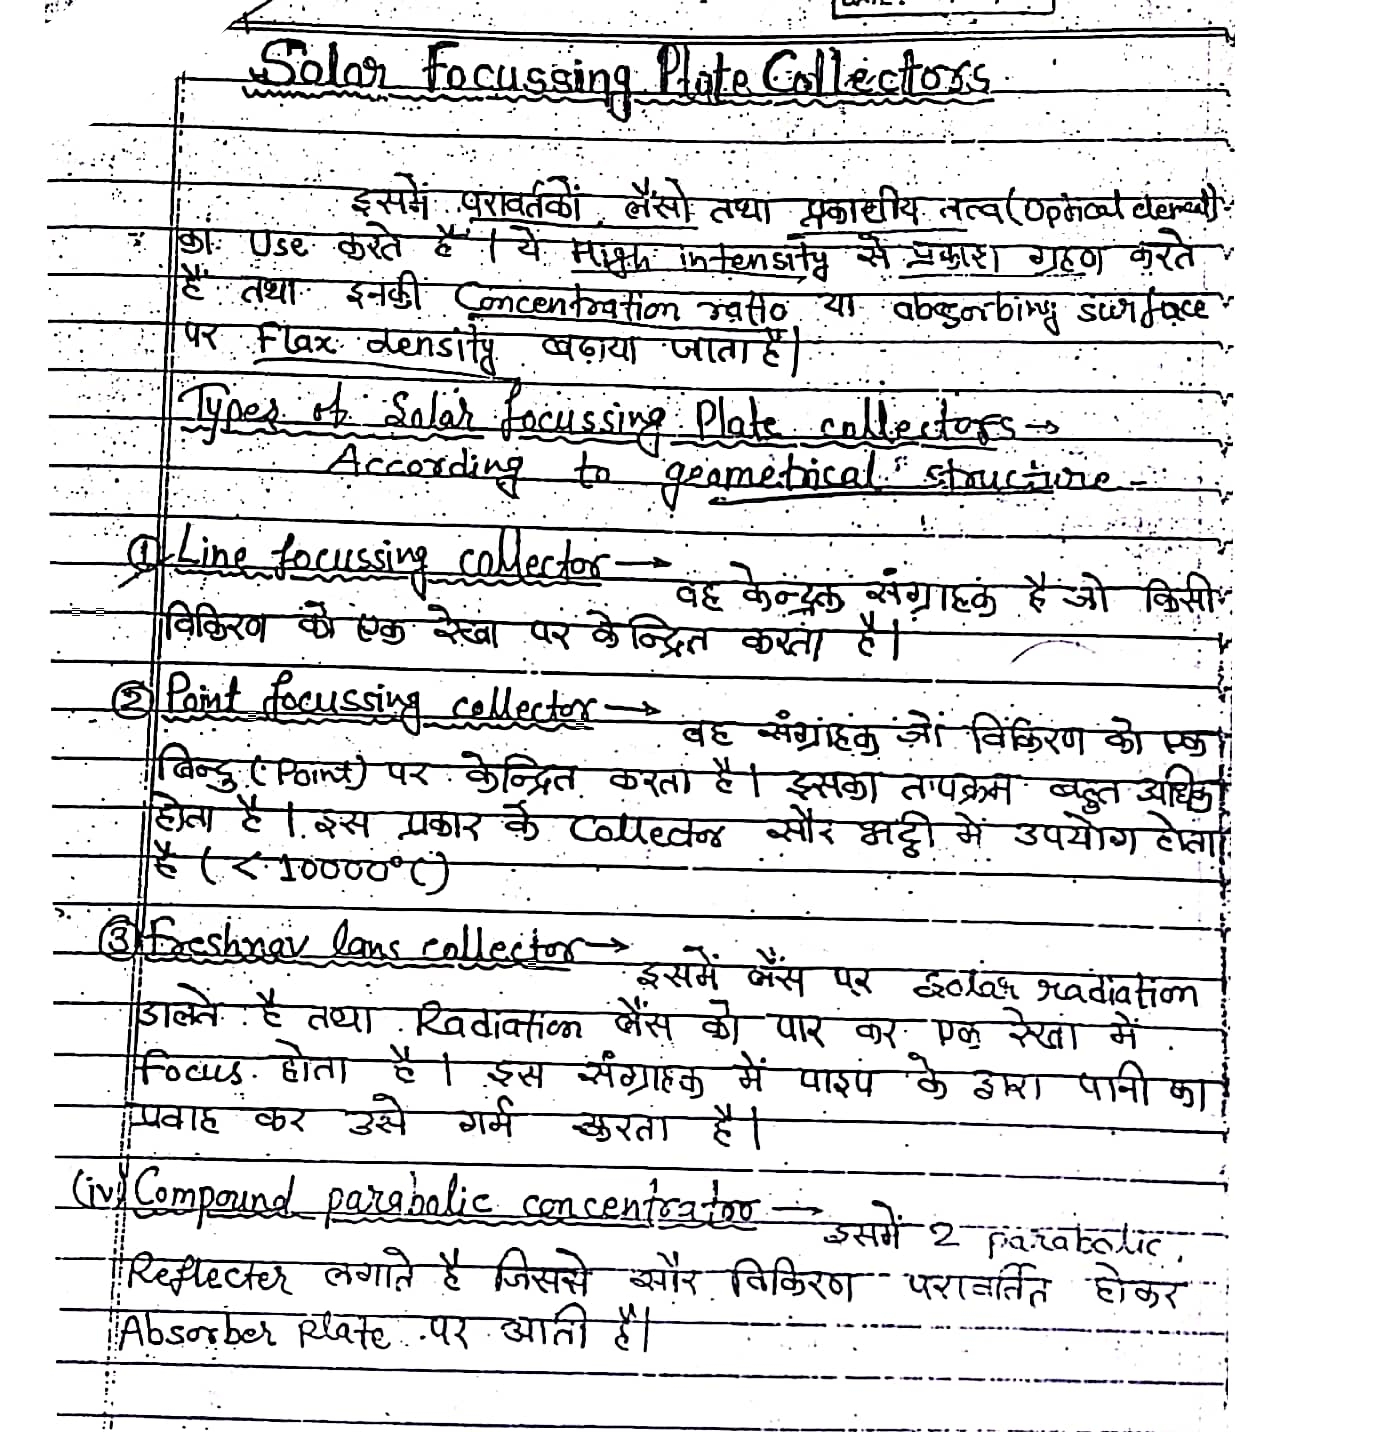 Solar Focussing Plate Collectors
इसमें परावर्तकों, लैंसो तथा प्रकाशीय तत्व (Optical element)
का Use करते हैं । ये High intensity से प्रकाश ग्रहण करते
हैं तथा इनकी Concentration ratio या absorbing surface
पर Flax density बढ़ाया जाता है।
Types of Solar focussing Plate collectors →
According to geometrical structure -
① Line focussing collector →
वह केन्द्रक संग्राहक है जो किसी
विकिरण को एक रेखा पर केन्द्रित करता है।
② Point focussing collector →
वह संग्राहक जो विकिरण को एक
बिन्दु (Point) पर केन्द्रित करता है। इसका तापक्रम बहुत अधिक
होता है । इस प्रकार के Collector सौर भट्टी में उपयोग होता
है ( < 10000°C)
③ Freshnav lans collector →
इसमें लैंस पर Solar radiation
डालते है तथा Radiation लैंस को पार कर एक रेखा में
Focus होता है । इस संग्राहक में पाइप के द्वारा पानी का
प्रवाह कर उसे गर्म करता है।
(iv) Compound parabolic concentrator →
इसमें 2 parabolic
Reflecter लगाते है जिससे सौर विकिरण परावर्तित होकर
Absorber Plate पर आती है।